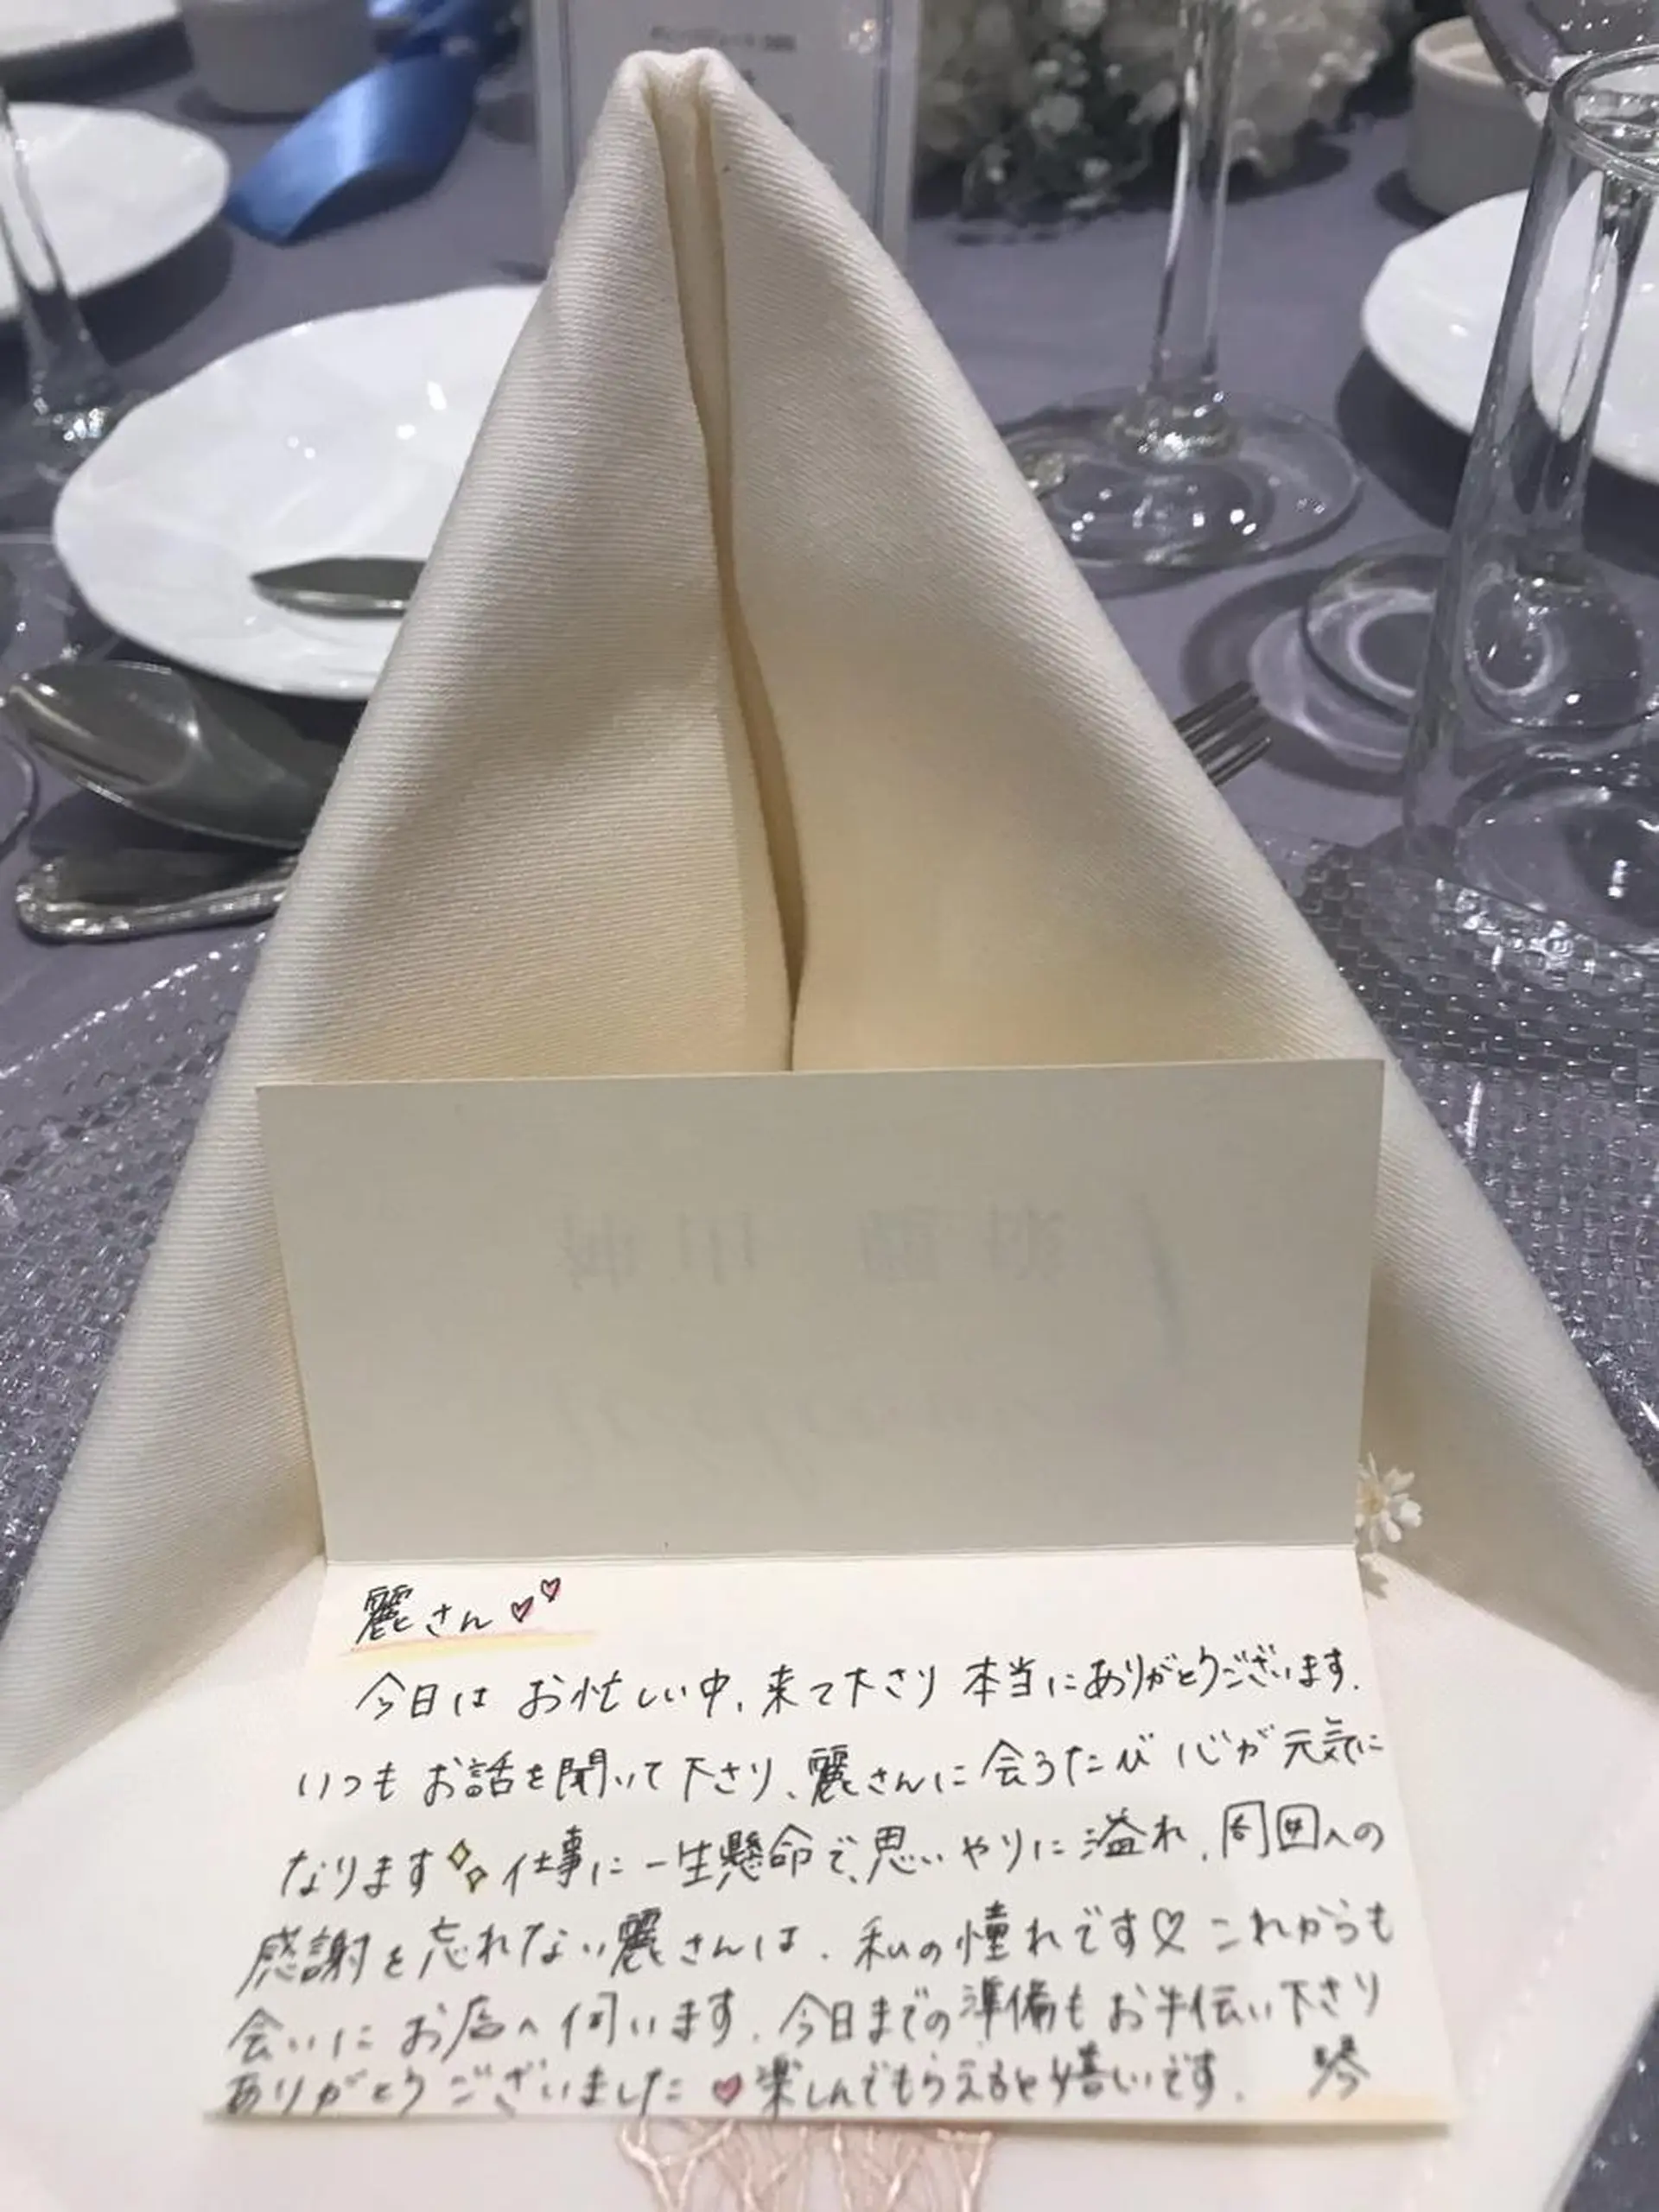 麗さん♡♡
今日は お忙しい中、来て下さり 本当にありがとうございます.
いつも お話を聞いて下さり、麗さんに会うたび 心が元気に
なります 仕事に一生懸命で、思いやりに溢れ、周囲への
感謝を忘れない麗さんは、私の憧れです♡ これからも
会いに お店へ伺います. 今日までの準備も お手伝い下さり
ありがとうございました♡楽しんでもらえると嬉しいです. 琴